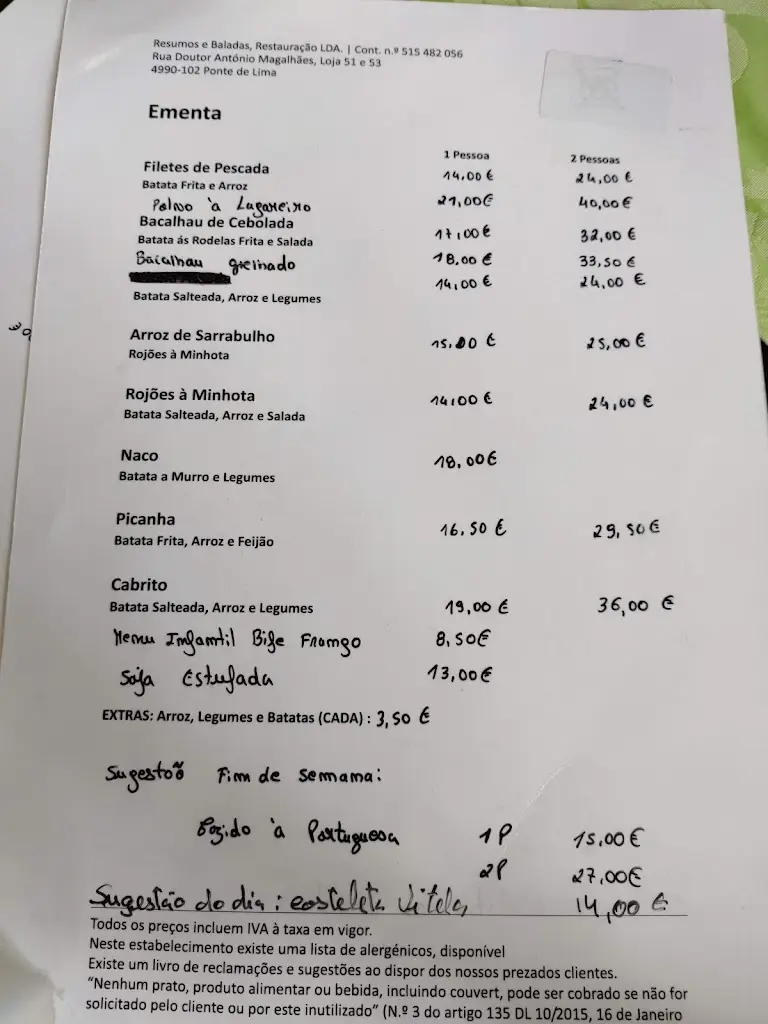 Resumos e Baladas, Restauração LDA. | Cont. n.º 515 482 056
Rua Doutor António Magalhães, Loja 51 e 53
4990-102 Ponte de Lima
Ementa
1 Pessoa 2 Pessoas
Filetes de Pescada 14,00 € 24,00 €
Batata Frita e Arroz
Polvo à Lagareiro 21,00€ 40,00€
Bacalhau de Cebolada
Batata ás Rodelas Frita e Salada 17,00€ 32,00 €
Bacalhau greinado 18.00 € 33,50 €
14,00 € 24,00 €
Batata Salteada, Arroz e Legumes
Arroz de Sarrabulho 15.00 € 25,00 €
Rojões à Minhota
Rojões à Minhota 14,00 € 24,00 €
Batata Salteada, Arroz e Salada
Naco 18,00€
Batata a Murro e Legumes
Picanha 16.50 € 29,50€
Batata Frita, Arroz e Feijão
Cabrito
Batata Salteada, Arroz e Legumes 19,00 € 36,00 €
Menu Infantil Bife Frango 8,50€
Soja Estufada 13,00€
EXTRAS: Arroz, Legumes e Batatas (CADA) : 3,50 €
Sugestoõ Fim de semana:
Cozido à Portuguesa 1P 15.00€
2P 27,00€
Sugestão do dia : costeleta Vitela 14,00 €
Todos os preços incluem IVA à taxa em vigor.
Neste estabelecimento existe uma lista de alergénicos, disponível
Existe um livro de reclamações e sugestões ao dispor dos nossos prezados clientes.
“Nenhum prato, produto alimentar ou bebida, incluindo couvert, pode ser cobrado se não for
solicitado pelo cliente ou por este inutilizado” (N.º 3 do artigo 135 DL 10/2015, 16 de Janeiro